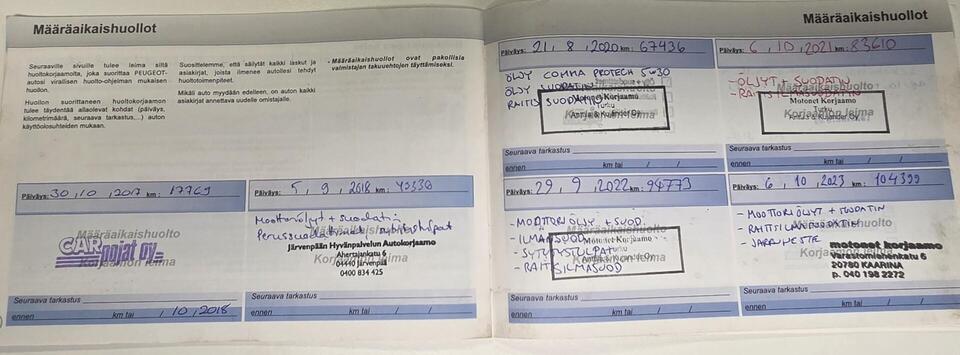 Määräaikaishuollot
Seuraaville sivuille tulee leima siltä
huoltokorjaamolta, joka suorittaa PEUGEOT-
autosi virallisen huolto-ohjelman mukaisen
huollon.
Huollon suorittaneen huoltokorjaamon
tulee täydentää allaolevat kohdat (päiväys,
kilometrimäärä, seuraava tarkastus,...) auton
käyttöolosuhteiden mukaan.
Suosittelemme, että säilytät kaikki laskut ja
asiakirjat, joista ilmenee autollesi tehdyt
huoltotoimenpiteet.
Mikäli auto myydään edelleen, on auton kaikki
asiakirjat annettava uudelle omistajalle.
- Määräaikaishuollot ovat pakollisia
valmistajan takuuehtojen täyttämiseksi.
Päiväys: 30, 10, 2017 km: 17769
Määräaikaishuolto
Korjaamon leima
CAR
nojat oy
Seuraava tarkastus
ennen km tai / 10 / 2018
Päiväys: 5, 9, 2018 km:
Moottoriöljyt + suodatin
Määräaikaishuolto
Järvenpään Hyvänpalvelun Autokorjaamo
Ahertajankatu 6
04440 Järvenpää
0400 834 425
Korjaamon leima
Seuraava tarkastus
ennen km tai / /
Määräaikaishuollot
Päiväys: 21, 8, 2020 km: 67436
ÖLJY COMMA PROTECH 5W30
ÖLJY SUODATIN
RAITIS SUODATIN
Motonet Korjaamo
Turku
Seuraava tarkastus
ennen km tai / /
Päiväys: 6, 10, 2021 km: 83610
- ÖLJYT + SUODATIN
- RAITISILMASUODATIN
Määräaikaishuolto
Motonet Korjaamo
Turku
Korjaamon leima
Seuraava tarkastus
ennen km tai / /
Päiväys: 29, 9, 2022 km: 94773
- MOOTTORIÖLJY + SUOD.
- ILMANSUOD.
- SYTYTYSTULPAT
- RAITISILMASUOD
Motonet Korjaamo
Turku
Seuraava tarkastus
ennen km tai / /
Päiväys: 6, 10, 2023 km: 104399
- MOOTTORIÖLJYT + SUODATIN
- RAITISILMANSUODATIN
- JARRUNESTE
Määräaikaishuolto
Korjaamon leima
motonet korjaamo
varastomiehenkatu 6
20780 KAARINA
p. 040 198 2272
Seuraava tarkastus
ennen km tai / /